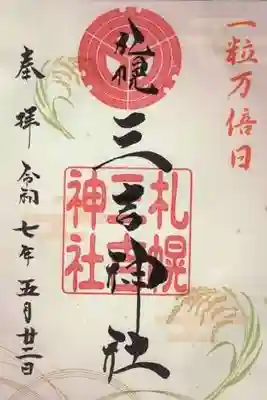 一粒万倍日
札幌
三吉神社
札幌
三吉
神社
奉拝
令和七年五月廿二日